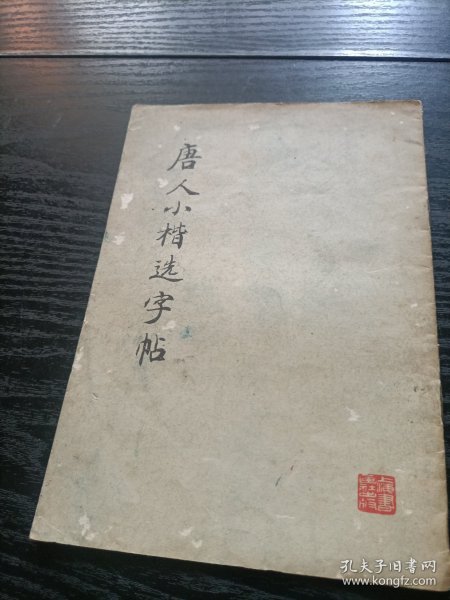 唐人小楷选字帖
上海书
画社出版
孔夫子旧书网
www.kongfz.com